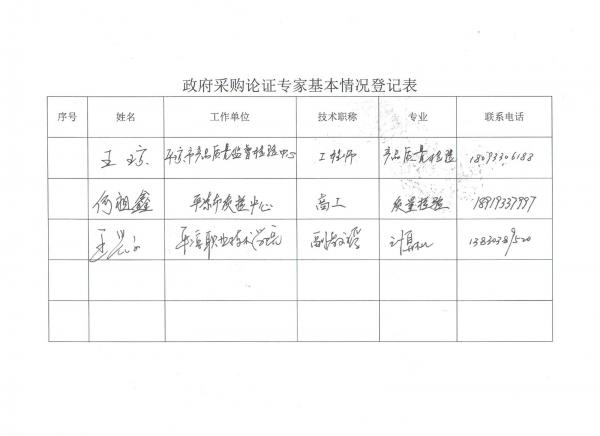 政府采购论证专家基本情况登记表
序号 姓名 工作单位 技术职称 专业 联系电话
王琼 平凉市产品质量监督检验中心 工程师 产品质量检验 18093306188
何祖鑫 平凉市质检中心 高工 质量检验 18919337997
王 平凉职业技术学院 副教授 计算机 13830389520